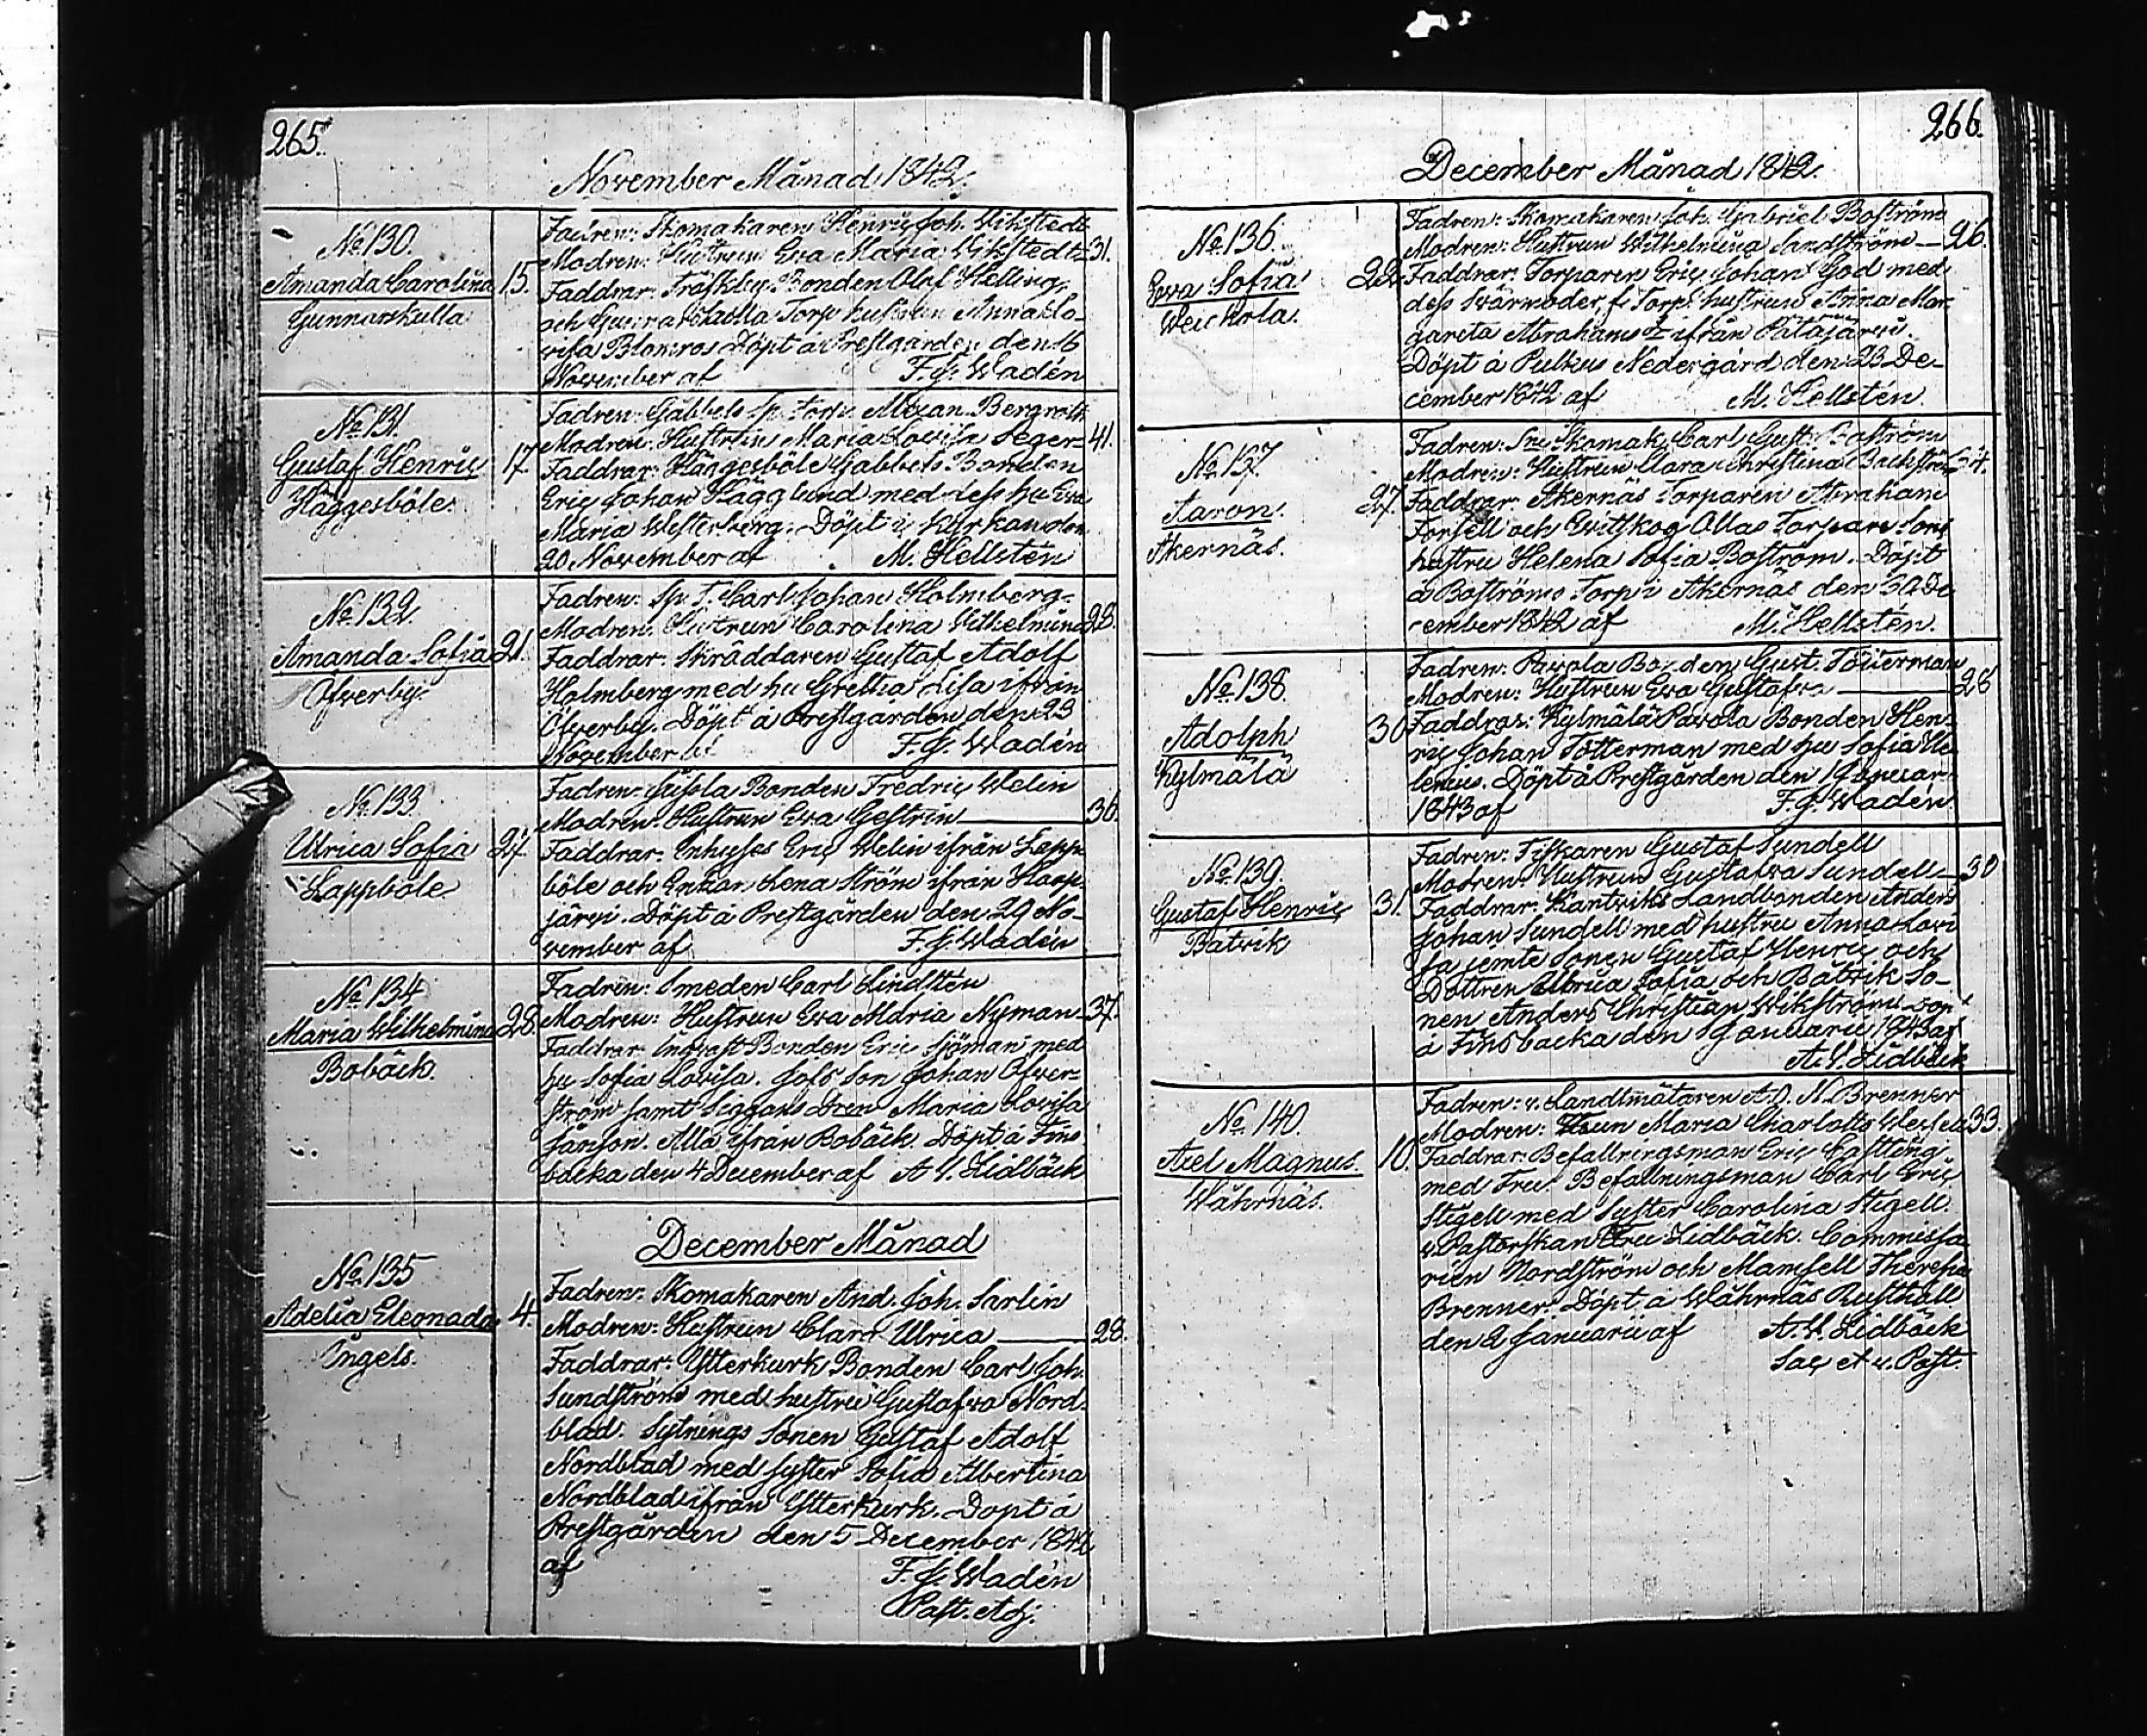 265.
November Månad 1842.
No 130.
Amanda Carolina
Gunnarskulla
15.
Fadren: Skomakaren Henric Joh. Wikstedt
Modren: Hustrun Eva Maria Wikstedt
31.
Faddrar: Träskby Bonden Olof Helling,
och Gunnarskulla Torp hustrun Anna Lo-
visa Blomros Döpt å Prestgården den 16
November af F. J. Wadén
No 131.
Gustaf Henric
Häggesböle.
17.
Fadren: Gabbels sp. Torp. Alexan. Bergroth
Modren: Hustrun Maria Lovisa Seger-
41.
Faddrar: Häggesböle Gabbels Bonden
Eric Johan Hägglund med dess hu Eva
Maria Westerberg. Döpt i Kyrkan den
20 November af M. Hellstén
No 132.
Amanda Sofia
Öfverby.
21.
Fadren: Sp. T. Carl Johan Holmberg-
Modren: Hustrun Carolina Wilhelmina
28.
Faddrar: Skräddaren Gustaf Adolf
Holmberg med hu Gretha Lisa ifrån
Öfverby. Döpt å Prestgården den 23
November af F. J. Wadén
No 133.
Ulrica Sofia
Lappböle
27.
Fadren: Bonden Fredric Welin
Modren: Hustrun Eva Gestrin
36.
Faddrar: Inhyses Eric Welin ifrån Lapp-
böle och Enkan Lena Ström ifrån Haap-
järvi. Döpt å Prestgården den 29 No-
vember af F. J. Wadén
No 134
Maria Wilhelmina
Bobäck.
28.
Fadren: Smeden Carl Lindtén
Modren: Hustrun Eva Maria Nyman-
37.
Faddrar: Bonden Eric Sjöman med
hu Sofia Lovisa. Jofs Son Johan Öfver-
ström samt Siggans Dren Maria Lovisa
Janson. Alla ifrån Bobäck. Döpt å Fins
backa den 4 December af A. V. Lidbäck
December Månad
No 135
Adelia Eleonada
Ingels.
4.
Fadren: Skomakaren And. Joh. Sarlin
Modren: Hustrun Clara Ulrica
28.
Faddrar: Ytterkurk Bonden Carl Joh.
Sundström med hustru Gustafva Nord-
blad. Sytnings Sonen Gustaf Adolf
Nordblad med syster Sofia Albertina
Nordblad ifrån Ytterkurk. Döpt å
Prestgården den 5 December 1842
af F. J. Wadén
Past. Adj.
266.
December Månad 1842.
No 136.
Eva Sofia
Weickola.
22.
Fadren: Skomakaren Joh. Gabriel Boström
Modren: Hustrun Wilhelmina Sandström
26.
Faddrar: Torparen Eric Johan God med
dess Svärmoder f. Torp. hustrun Anna Mar-
gareta Abrahams dr ifrån Pätäjärvi.
Döpt å Pulkus Nedergård den 23 De-
cember 1842 af M. Hellstén.
No 137.
Aaron.
Åkernäs.
27.
Fadren: Skomak. Carl Gust. Boström
Modren: Hustrun Clara Christina Backström
34.
Faddrar: Åkernäs Torparen Abraham
Forsell och Evitskog Ollas Torpare Sons
hustru Helena Sofia Boström. Döpt
å Boströms Torp i Åkernäs den 30 De
cember 1842 af M. Hellstén.
No 138.
Adolph
Kylmälä
30.
Fadren: Pavola Bonden Gust. Tötterman
Modren: Hustrun Eva Gustafva
28
Faddrar: Kylmälä Pavola Bonden Hen-
ric Johan Tötterman med hu Sofia He-
lenius. Döpt å Prestgården den 1 Januar.
1843 af F. J. Wadén
No 139.
Gustaf Henric
Båtvik
31.
Fadren: Fiskaren Gustaf Sundell
Modren: Hustrun Gustafva Sundell
30
Faddrar: Kantviks Landbonden Anders
Johan Sundell med hustru Anna Lovi
sa jemte Sonen Gustaf Henric och
Dottren Ulrica Sofia och Båtvik So-
nen Anders Christian Wikström Döpt
å Finsbacka den 1 Januarii 1843 af
A. V. Lidbäck
No 140.
Axel Magnus.
Wåhrnäs.
10.
Fadren: v. Landtmätaren A. N. Brenner
Modren: Maria Charlotta
33.
Faddrar: Befallningsman Eric Castling
med Fru. Befallningsman Carl Eric
Stigell med Syster Carolina Stigell.
v. Pastorskan Fru Lidbäck. Commissa
rien Nordström och Mamsell Theresa
Brenner. Döpt å Wåhrnäs Rusthåll
den 2 Januarii af A. V. Lidbäck
Sac. et v. Past.